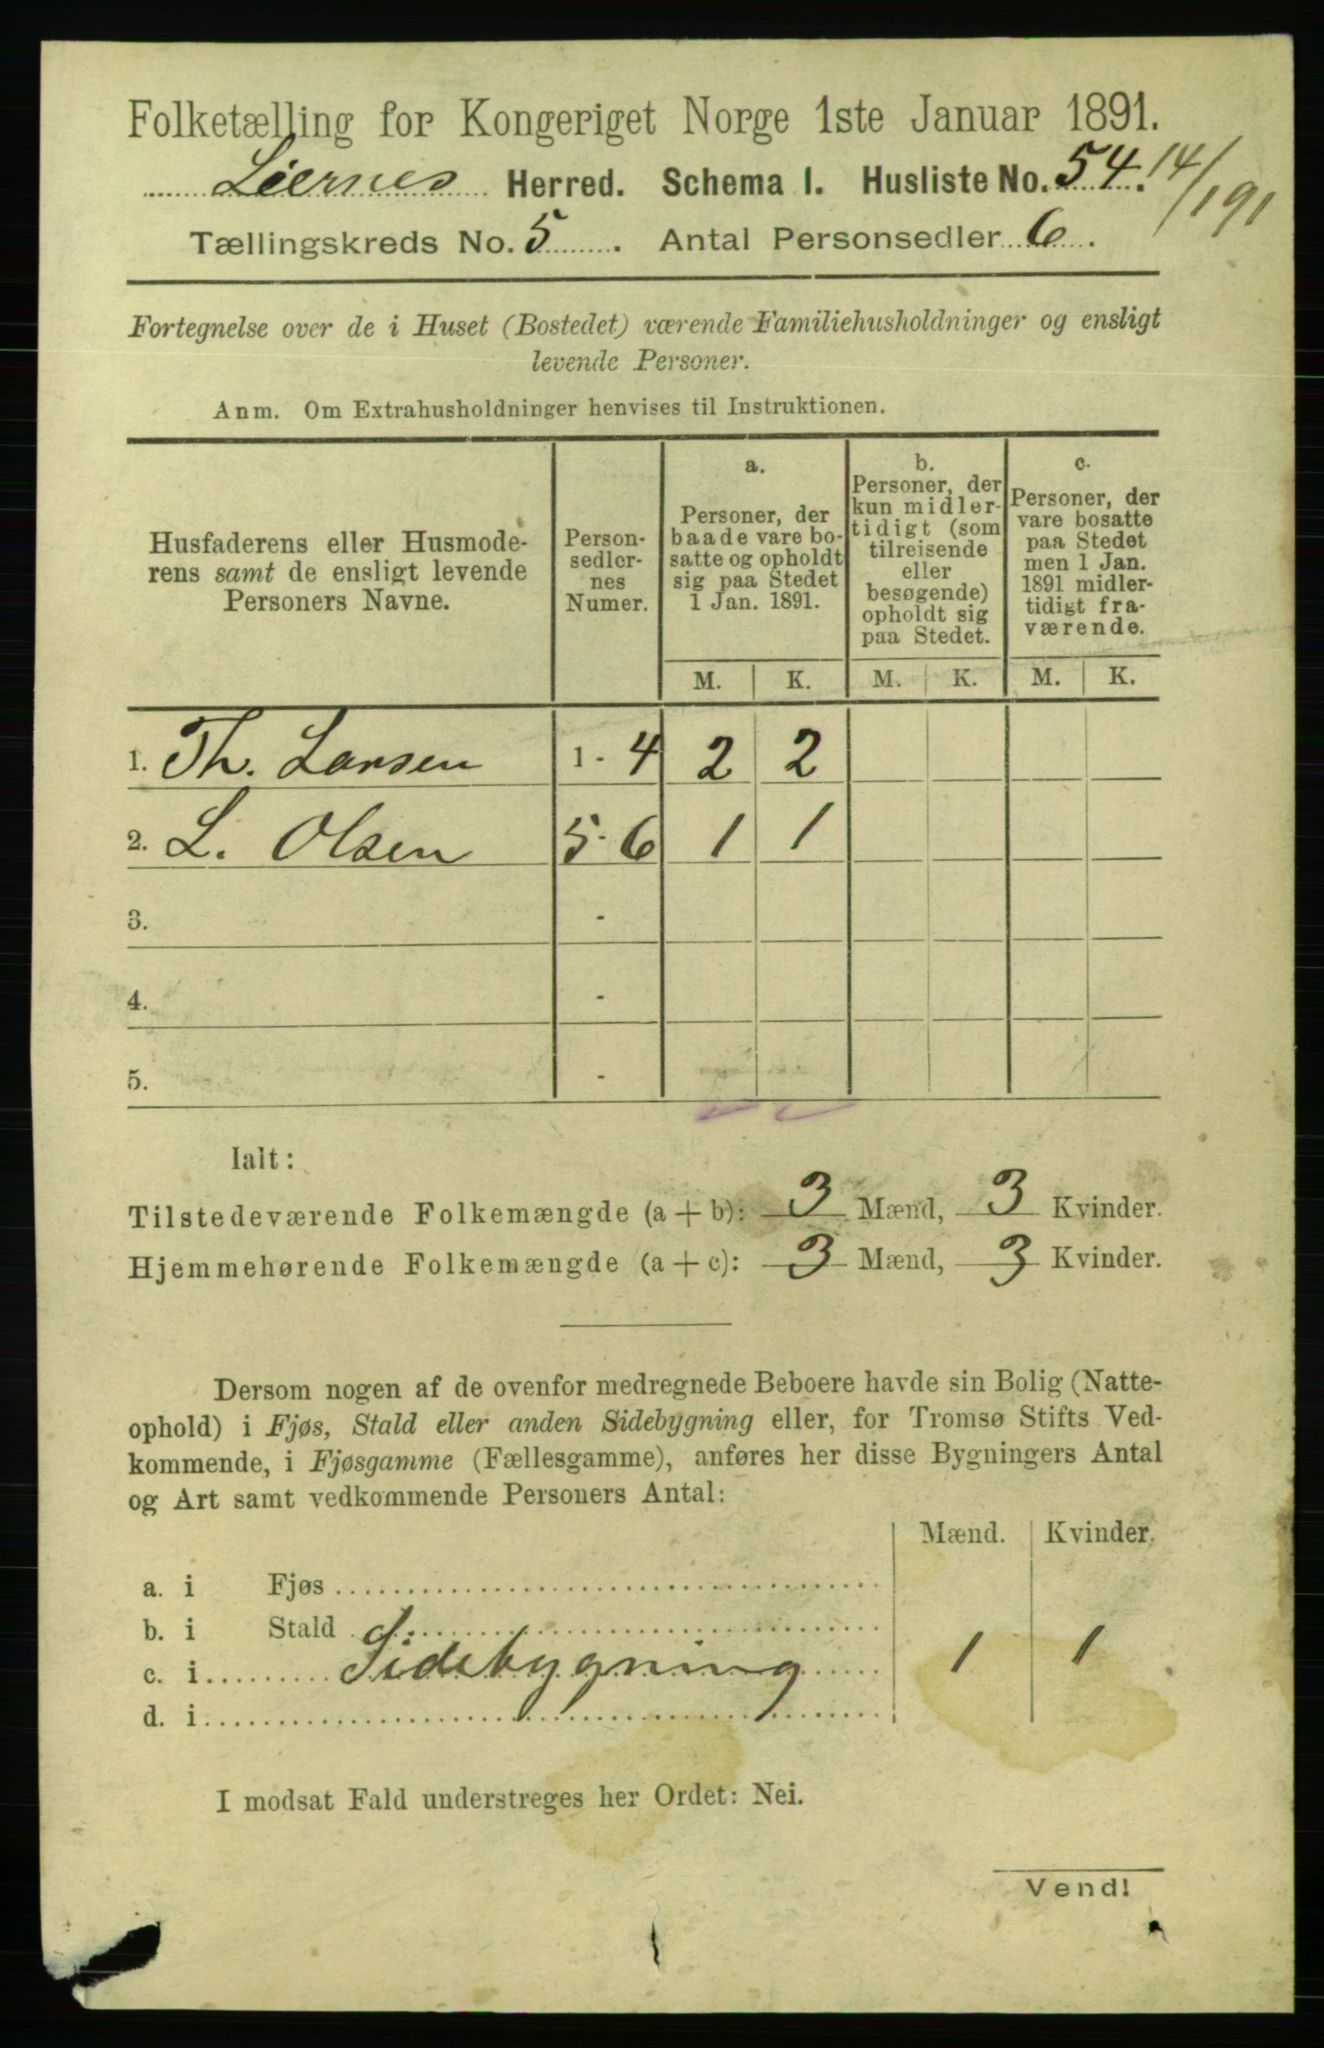 Folketælling for Kongeriget Norge 1ste Januar 1891.
Herred. Schema I. Husliste No. 54. 14/191
Tællingskreds No. 5. Antal Personsedler 6.
Fortegnelse over de i Huset (Bostedet) værende Familiehusholdninger og ensligt
levende Personer.
Anm. Om Extrahusholdninger henvises til Instruktionen.
Husfaderens eller Husmode-
rens samt de ensligt levende
Personers Navne.
Person-
sedler-
nes
Numer.
a.
Personer, der
baade vare bo-
satte og opholdt
sig paa Stedet
1 Jan. 1891.
b.
Personer, der
kun midler-
tidigt (som
tilreisende
eller
besøgende)
opholdt sig
paa Stedet.
c.
Personer, der
vare bosatte
paa Stedet
men 1 Jan.
1891 midler-
tidigt fra-
værende.
M. K. M. K. M. K.
1. Th. Larsen 1 - 4 2 2
2. L. Olsen 5 - 6 1 1
3. -
4. -
5. -
Ialt:
Tilstedeværende Folkemængde (a + b): 3 Mænd, 3 Kvinder.
Hjemmehørende Folkemængde (a + c): 3 Mænd, 3 Kvinder.
Dersom nogen af de ovenfor medregnede Beboere havde sin Bolig (Natte-
ophold) i Fjøs, Stald eller anden Sidebygning eller, for Tromsø Stifts Ved-
kommende, i Fjøsgamme (Fællesgamme), anføres her disse Bygningers Antal
og Art samt vedkommende Personers Antal:
Mænd. Kvinder.
a. i Fjøs
b. i Stald
c. i Sidebygning 1 1
d. i
I modsat Fald understreges her Ordet: Nei.
Vend!